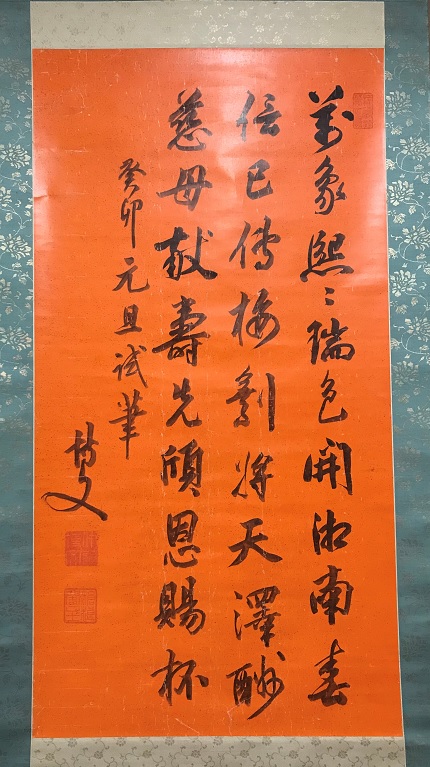 萬象熙々瑞色開湘南春
信已傳梅剩將天澤酬
慈母献壽先頒恩賜杯
癸卯元旦試筆
博文